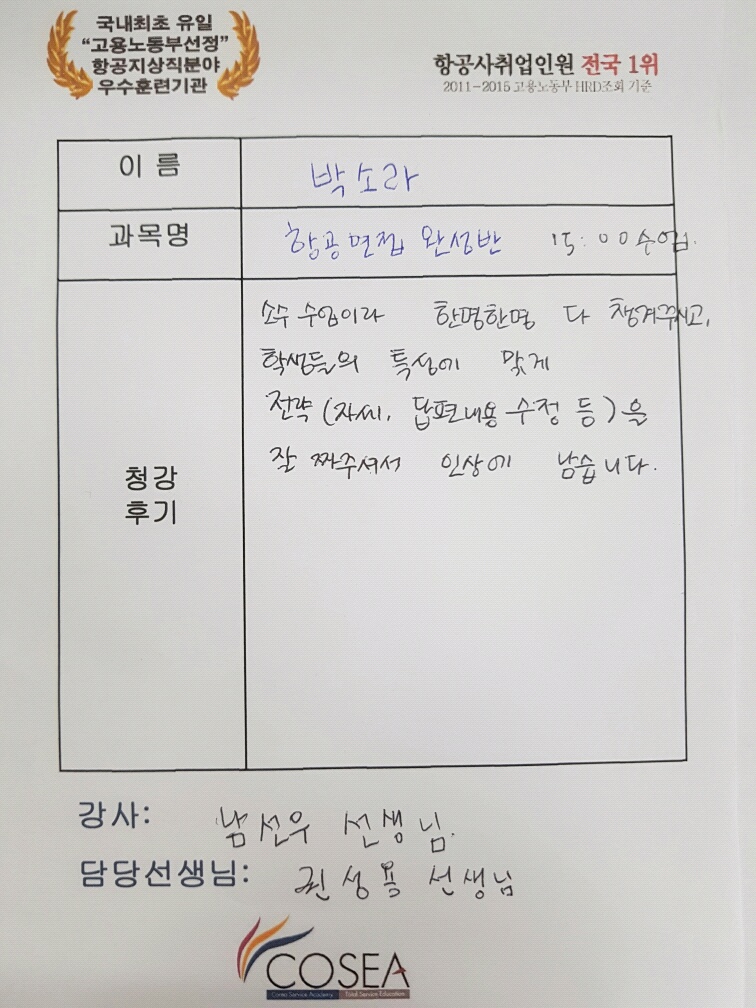 국내최초 유일
“고용노동부선정”
항공지상직분야
우수훈련기관
항공사취업인원 전국 1위
2011-2015 고용노동부 HRD조회 기준
이 름
박소라
과목명
항공면접 완성반 15:00수업.
청강
후기
소수 수업이라 한명한명 다 챙겨주시고,
학생들의 특성에 맞게
전략(자세, 답변내용 수정 등)을
잘 짜주셔서 인상에 남습니다.
강사: 남선우 선생님.
담당선생님: 권성용 선생님
COSEA
Corea Service Academy Total Service Education